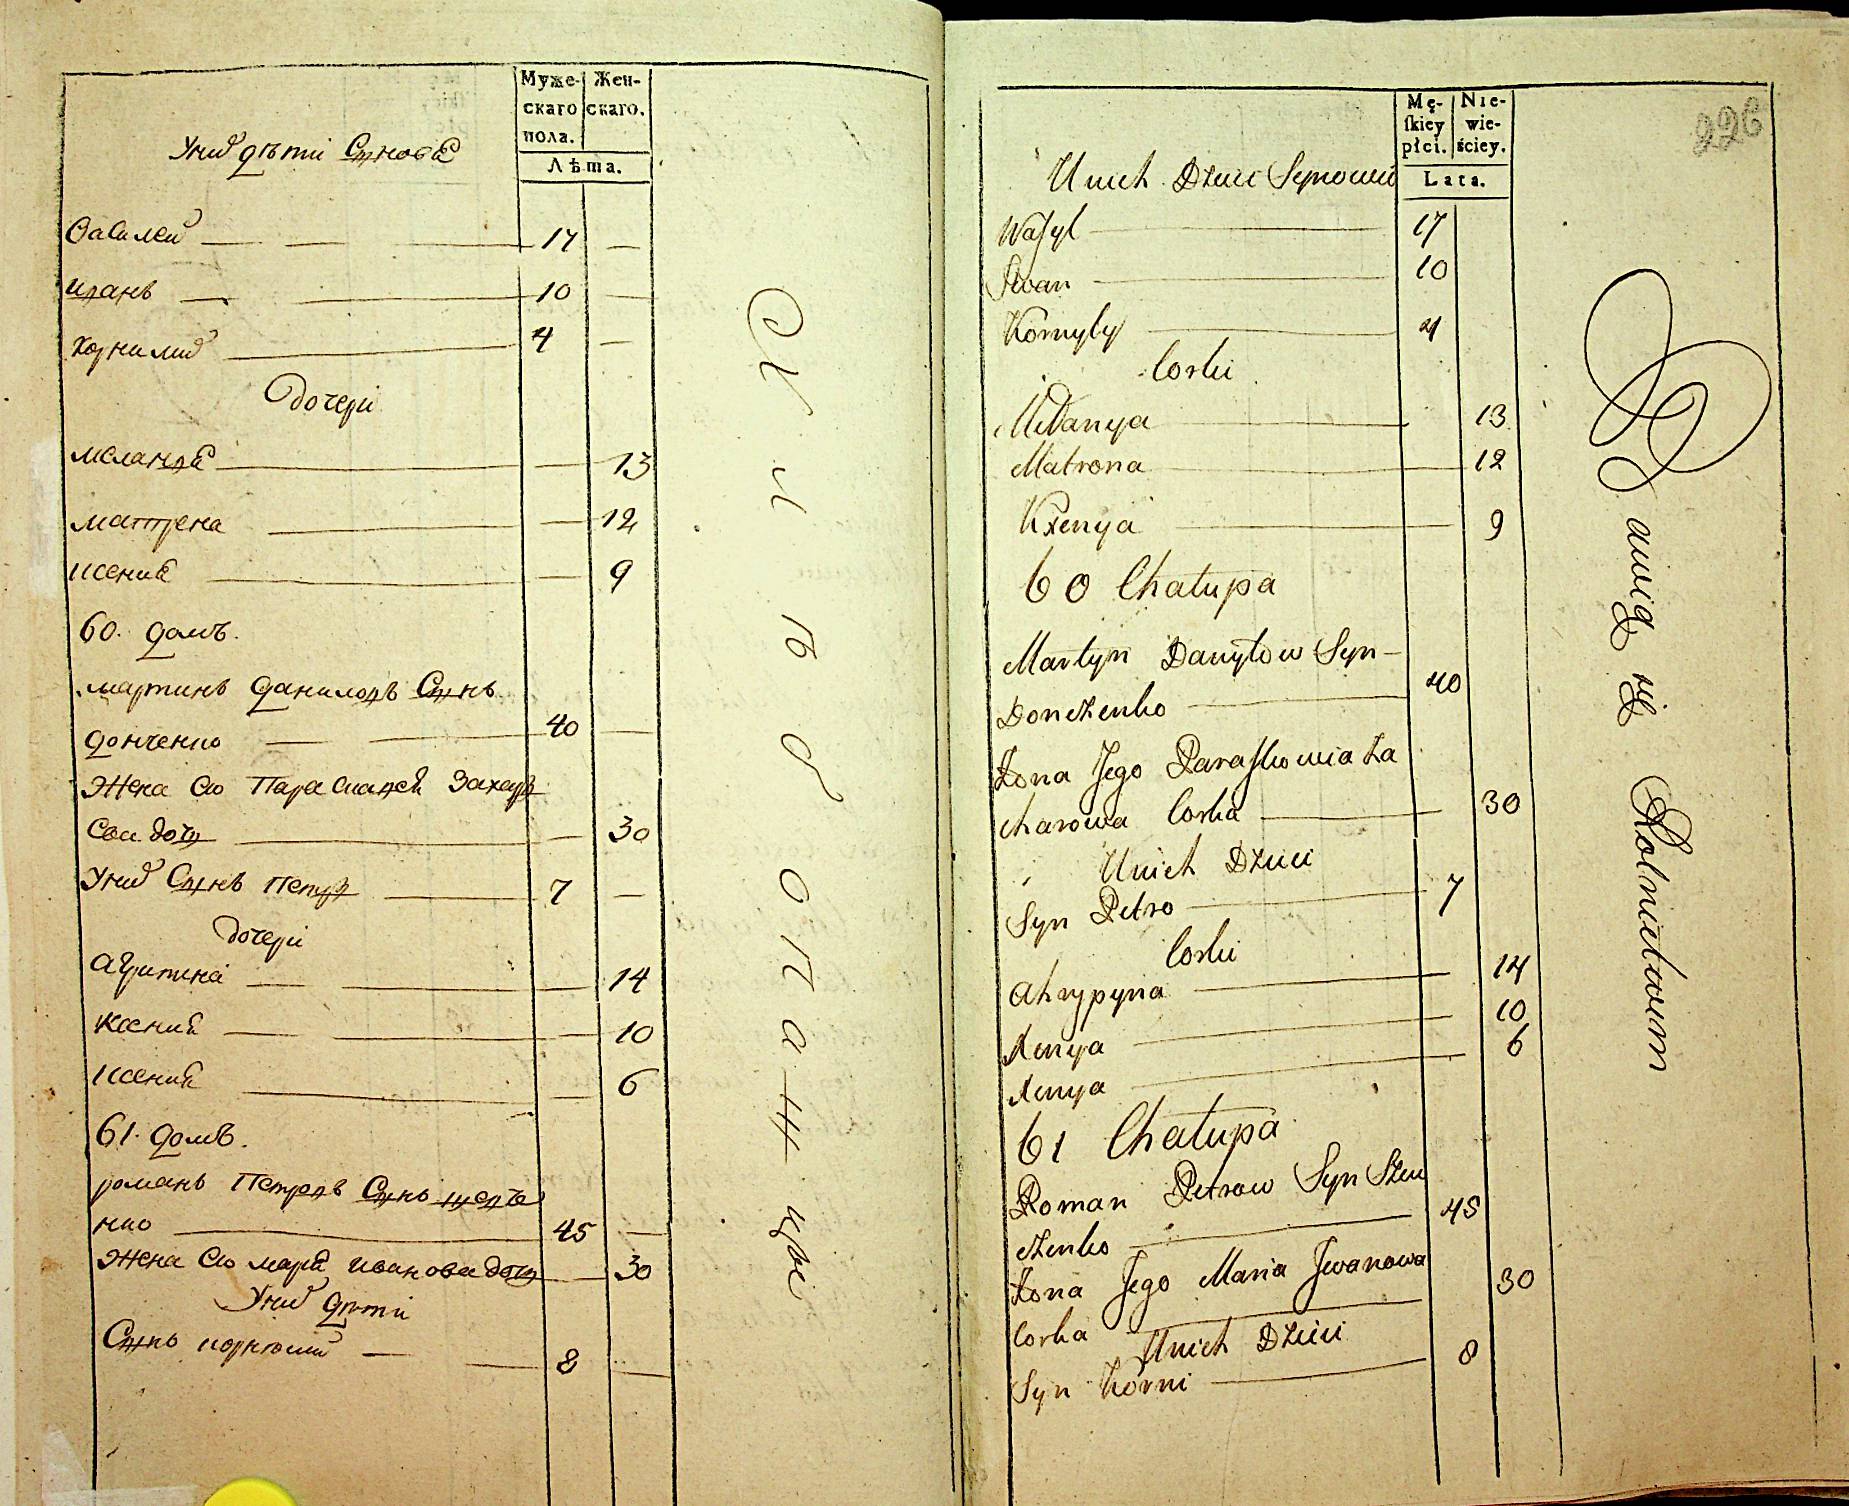 Муже-
скаго
пола.
Жен-
скаго.
Лѣта.
Уних дѣти Сынове
Василей — — — 17 —
иванъ — — 10 —
Корнилий — 4 —
Дочери
меланя — — 13
матрена — — 12
ксения — — 9
60. домъ.
мартинъ даниловъ Сынъ
донченко — — 40 —
Жена его Параскавея Захаро
ва дочь — — 30
Уних Сынъ Петръ — 7 —
дочери
Агрипина — — — 14
Ксения — — — 10
ксения — — 6
61. домъ.
романъ Петровъ Сынъ
нко — 45 —
Жена его мария иванова дочь — 30
Уних дѣти
Сынъ корнилий — — 8 —
Хлѣбопажцы
226
Mę-
skiey
płci.
Nie-
wie-
ściey.
Lata.
Unich Dzieci Synowie
Wasyl — 17
Iwan — 10
Kornyly — 4
Corki
Melanya — 13
Matrona — 12
Kxenya — 9
60 Chałupa
Martyn Danyłow Syn —
Donczenko — 40
Zona Jego Paraskowia Za
charowa Corka — 30
Unich Dzieci
Syn Petro — 7
Corki
Ahrypyna — 14
Xenya — 10
Xenya — 6
61 Chałupa
Roman Petrow Syn Szew
czenko — 45
Zona Jego Maria Jwanowa
Corka — 30
Unich Dzieci
Syn Korni — 8
Bawią się Rolnictwem